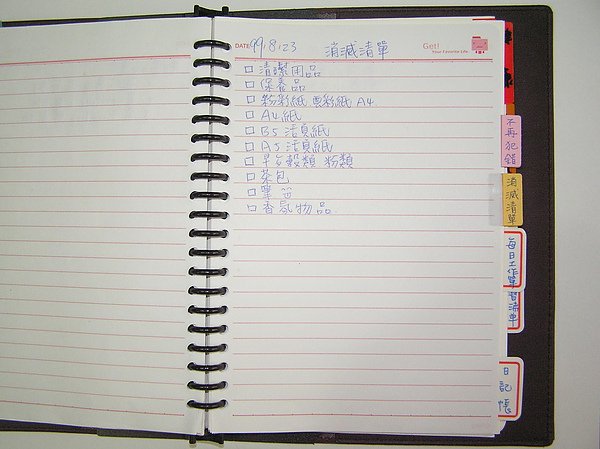 DATE 99.8.23 消滅清單 Get!
Your Favorite Life.
□ 清潔用品
□ 保養品
□ 粉彩紙 雲彩紙 A4
□ A4紙
□ B5 活頁紙
□ A5 活頁紙
□ 早乡穀類 粉類
□ 茶包
□ 筆
□ 香氛物品
不再犯錯
消滅清單
每日工作單
清單
日記帳